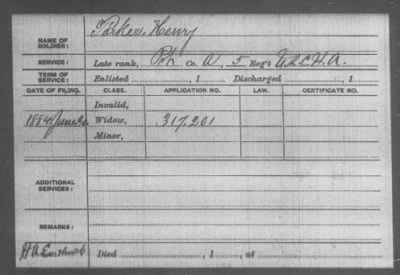 NAME OF SOLDIER: Parker, Henry
SERVICE: Late rank, Pvt Co. A, 5 Reg't U.S.C.H.A.
TERM OF SERVICE: Enlisted , 1 Discharged , 1
DATE OF FILING. CLASS. APPLICATION NO. LAW. CERTIFICATE NO.
Invalid,
1884 June Widow, 317,201
Minor,
ADDITIONAL SERVICES:
REMARKS:
Died , 1 , at